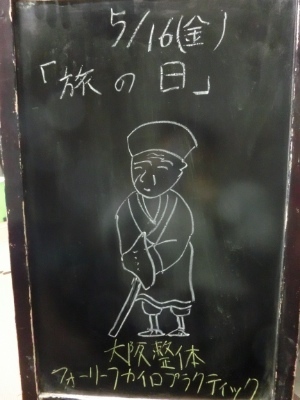 5/16(金)
「旅の日」
大阪整体
フォーリーフカイロプラクティック